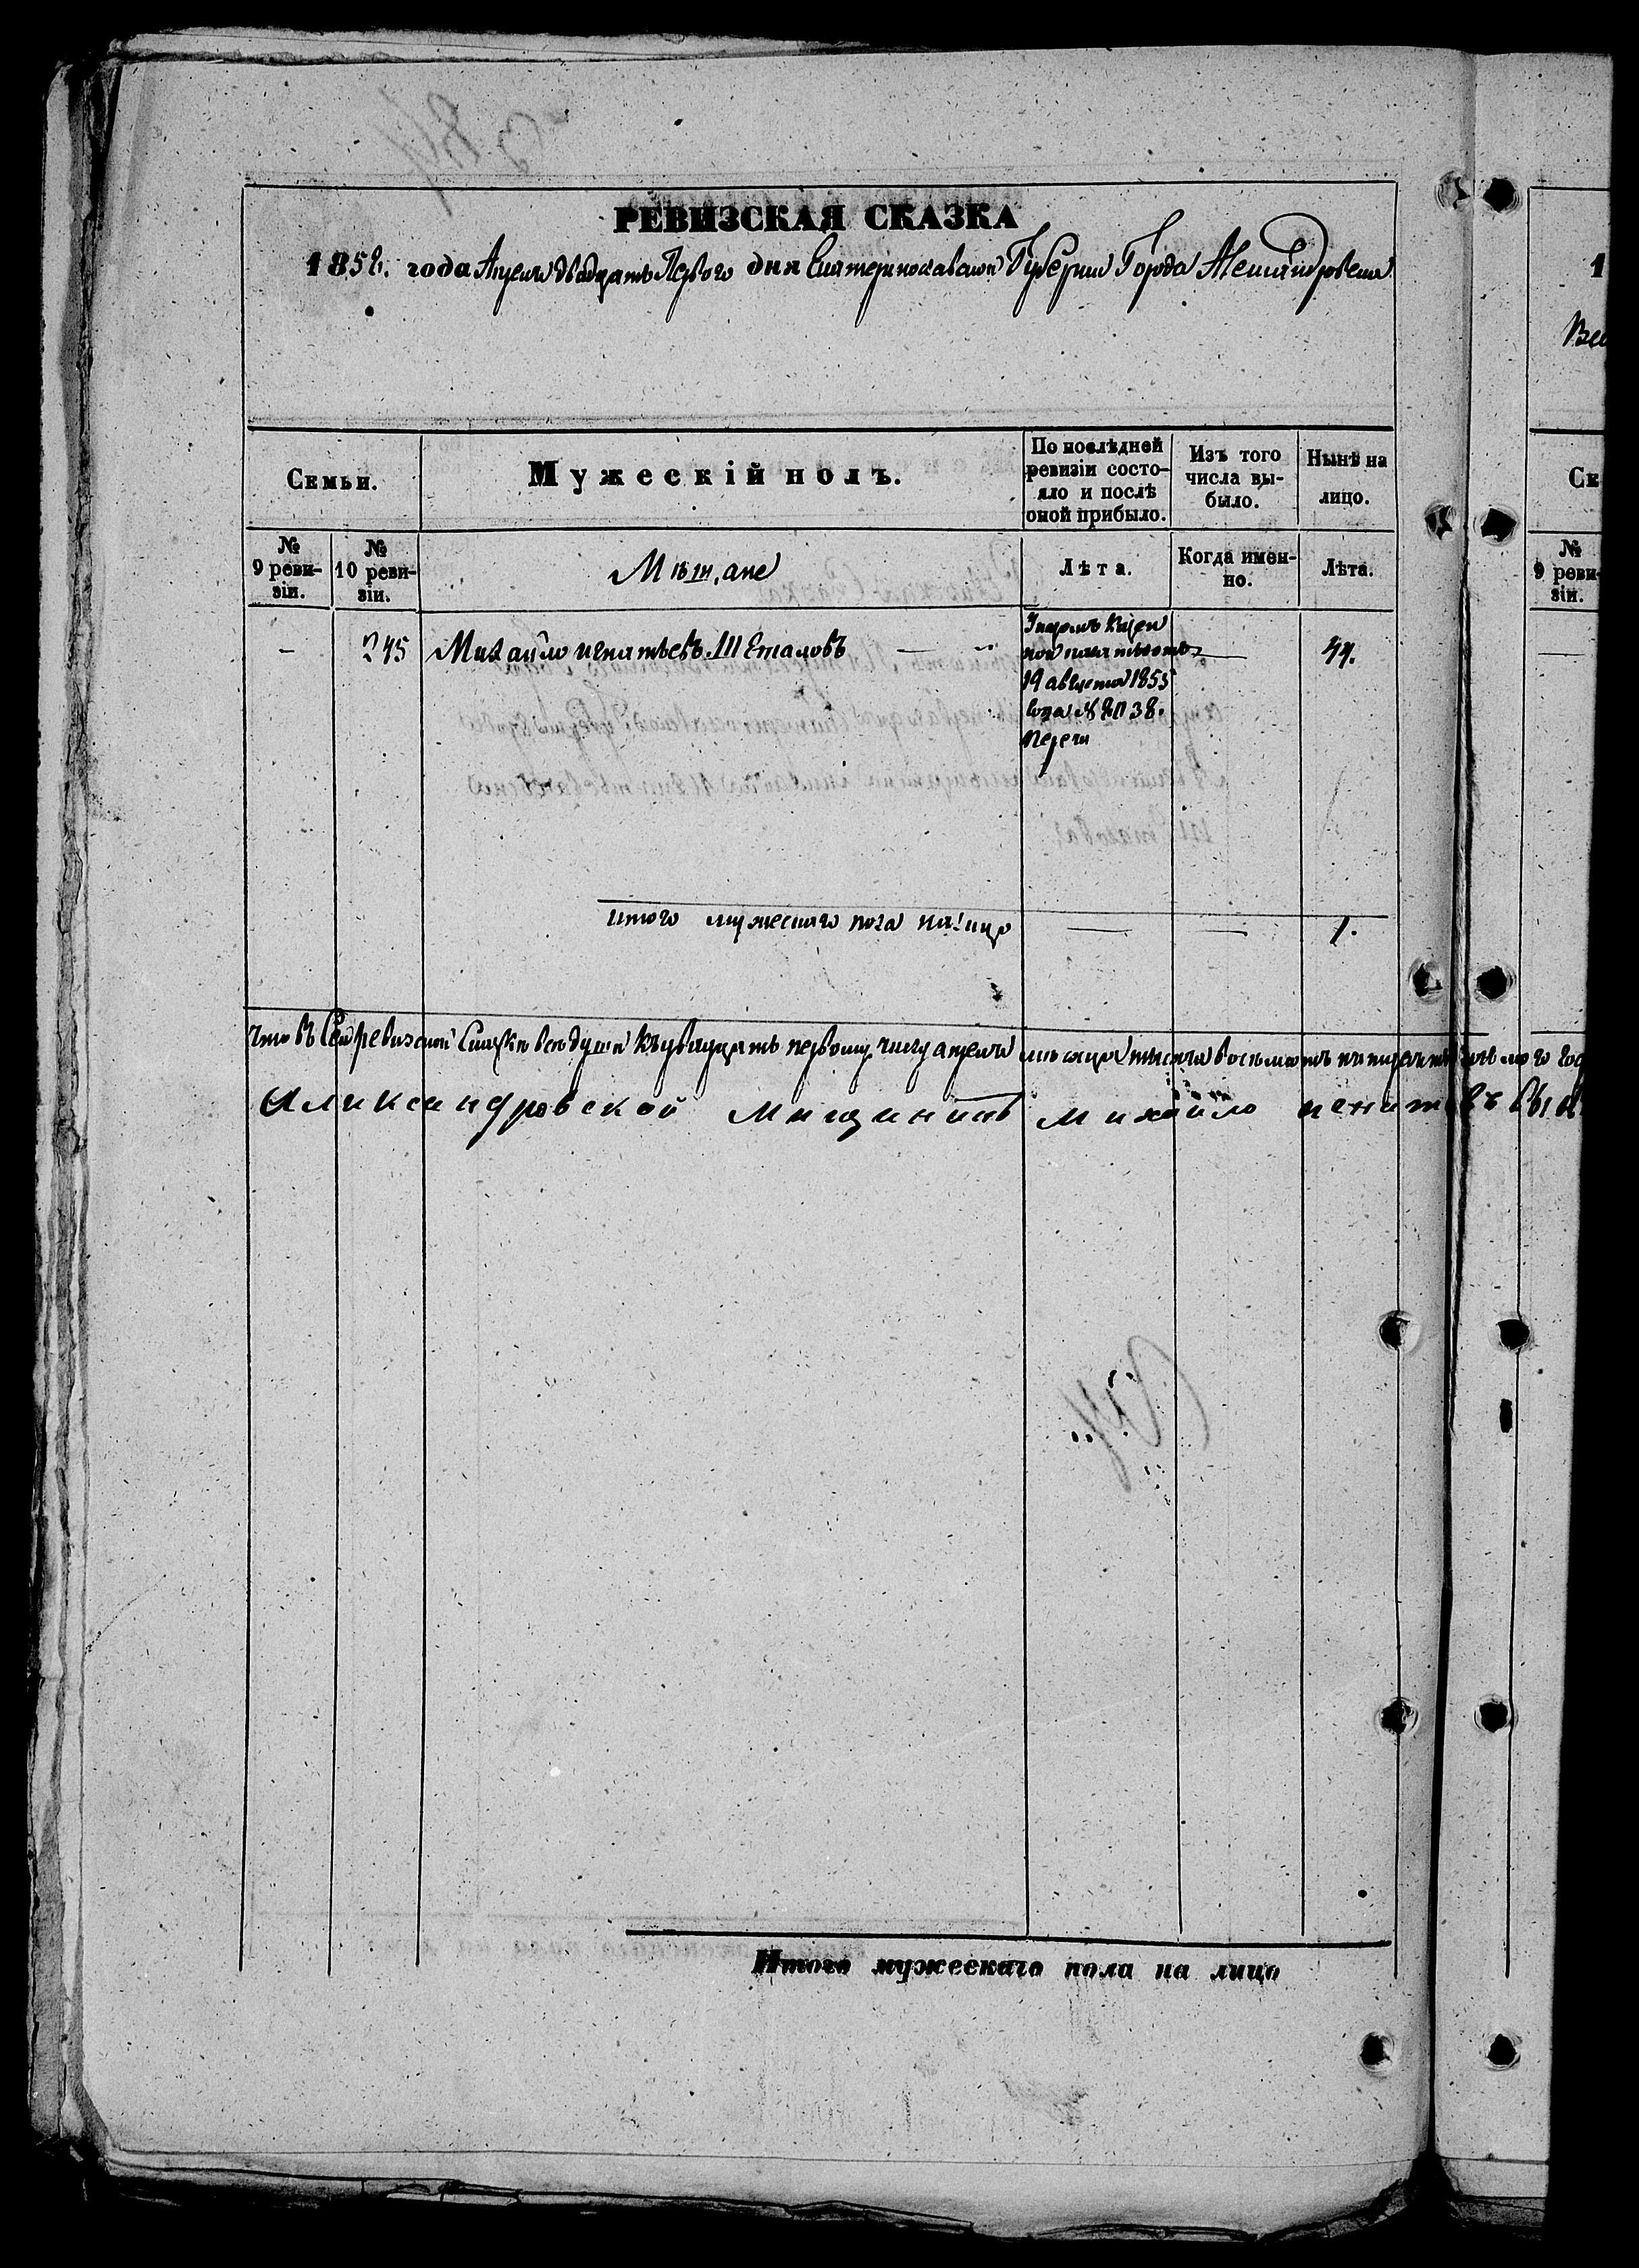 РЕВИЗСКАЯ СКАЗКА
1858. года Апреля двадцать Первого дня Екатеринославской Губернии Города Александровска
Семьи.
Мужескій полъ.
По послѣдней ревизіи состояло и послѣ оной прибыло.
Изъ того числа выбыло.
Нынѣ на лицо.
№ 9 ревизіи.
№ 10 ревизіи.
Мѣщане
Лѣта.
Когда именно.
Лѣта.
— 245 Михайло игнатьевъ Шеталовъ — — 44.
Указомъ Казен
ной палаты отъ
19 августа 1855
года № 8038.
итого мужескаго пола на лицо — — 1.
что въ сей ревизской Сказки всѣ души къ двадцать первому числу апреля мѣсяца тысяча восемьсотъ пятьдесятъ
Аликсандровской мищининъ михайло
Итого мужескаго пола на лицо
1
Се
№
9 реви-
зіи.